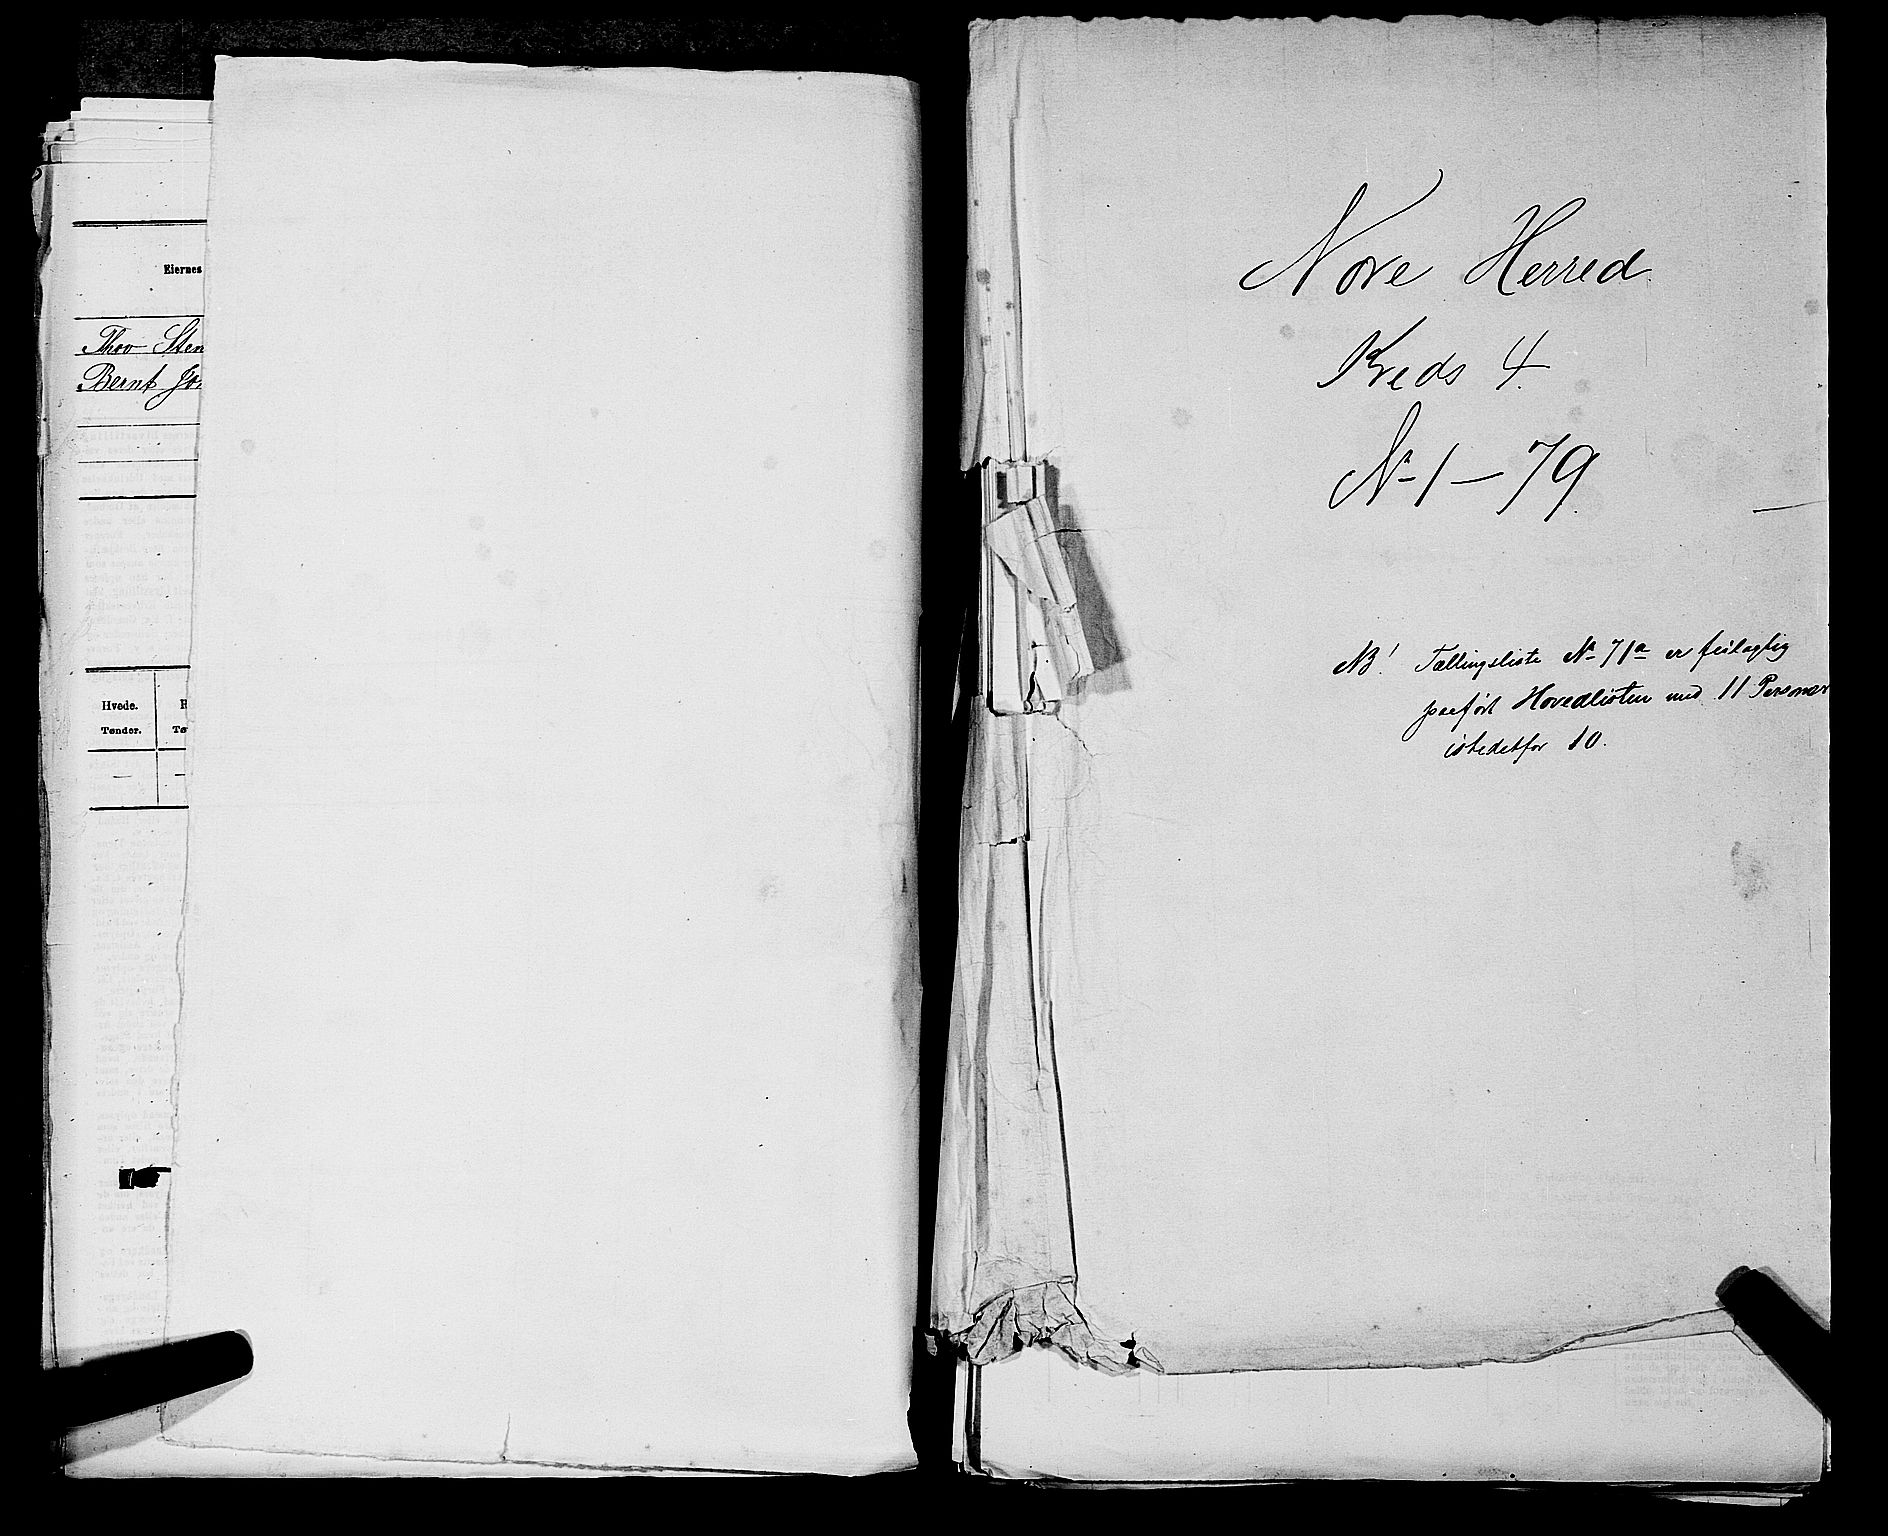 Eiernes
Thov Sten
Bernt Joh
Hvede.
Tønder.
Nore Herred
Kreds 4.
No 1 – 79.
NB! Tællingsliste No 71a er feilagtig
paaført Hovedlisten med 11 Personer
istedetfor 10.